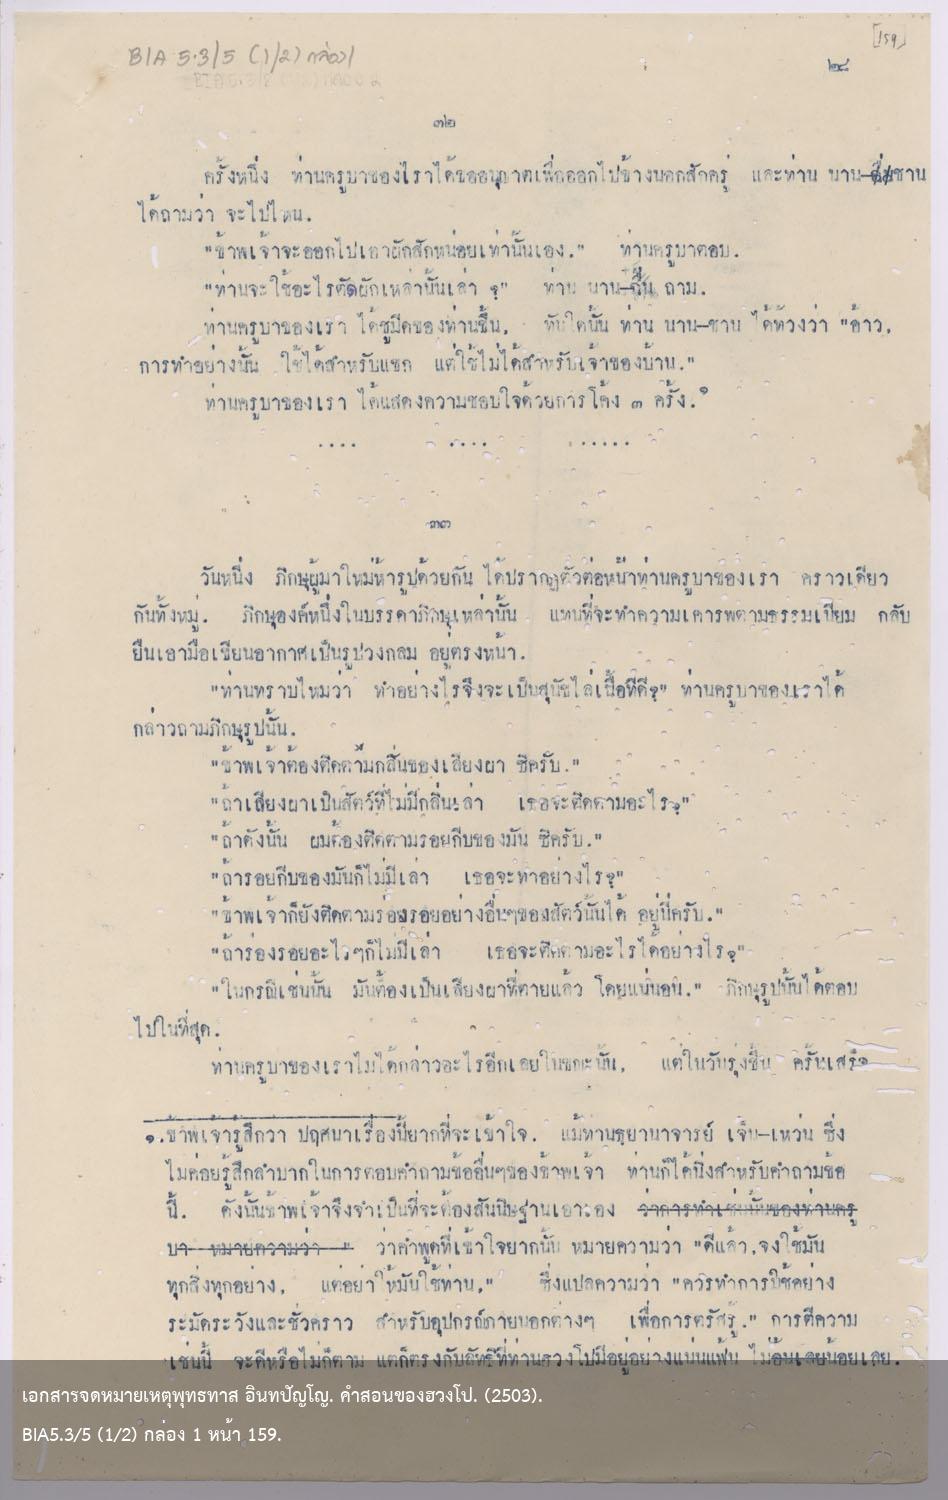 BIA 5.3/5 (1/2) กล่อง 1
[159]
๒๘
๓๒
ครั้งหนึ่ง ท่านครูบาของเราได้ขออนุญาตเพื่อออกไปข้างนอกสักครู่ และท่าน นาน-ชวาน
ได้ถามว่า จะไปไหน.
"ข้าพเจ้าจะออกไปเอาผักสักหน่อยเท่านั้นเอง." ท่านครูบาตอบ.
"ท่านจะใช้อะไรตัดผักเหล่านั้นเล่า ?" ท่าน นาน- ถาม.
ท่านครูบาของเรา ได้ชูมีดของท่านขึ้น, ทันใดนั้น ท่าน นาน-ชวาน ได้ท้วงว่า "อ้าว,
การทำอย่างนั้น ใช้ได้สำหรับแขก แต่ใช้ไม่ได้สำหรับเจ้าของบ้าน."
ท่านครูบาของเรา ได้แสดงความชอบใจด้วยการโค้ง ๓ ครั้ง.๑
.... .... ......
๓๓
วันหนึ่ง ภิกษุผู้มาใหม่ห้ารูปด้วยกัน ได้ปรากฏตัวต่อหน้าท่านครูบาของเรา คราวเดียว
กันทั้งหมู่. ภิกษุองค์หนึ่งในบรรดาภิกษุเหล่านั้น แทนที่จะทำความเคารพตามธรรมเนียม กลับ
ยืนเอามือเขียนอากาศเป็นรูปวงกลม อยู่ตรงหน้า.
"ท่านทราบไหมว่า ทำอย่างไรจึงจะเป็นสุนัขไล่เนื้อที่ดี?" ท่านครูบาของเราได้
กล่าวถามภิกษุรูปนั้น.
"ข้าพเจ้าต้องติดตามกลิ่นของเลียงผา ซิครับ."
"ถ้าเลียงผาเป็นสัตว์ที่ไม่มีกลิ่นเล่า เธอจะติดตามอะไร?"
"ถ้าดังนั้น ผมต้องติดตามรอยกีบของมัน ซิครับ."
"ถ้ารอยกีบของมันก็ไม่มีเล่า เธอจะทำอย่างไร?"
"ข้าพเจ้าก็ยังติดตามร่องรอยอย่างอื่นๆของสัตว์นั้นได้ อยู่นี่ครับ."
"ถ้าร่องรอยอะไรๆก็ไม่มีเล่า เธอจะติดตามอะไรได้อย่างไร?"
"ในกรณีเช่นนั้น มันต้องเป็นเลียงผาที่ตายแล้ว โดยแน่นอน." ภิกษุรูปนั้นได้ตอบ
ไปในที่สุด.
ท่านครูบาของเราไม่ได้กล่าวอะไรอีกเลยในขณะนั้น, แต่ในวันรุ่งขึ้น ครั้นเสร็จ
๑.ข้าพเจ้ารู้สึกว่า ปฤศนาเรื่องนี้ยากที่จะเข้าใจ. แม้ท่านธฺยานาจารย์ เจ็น-เหว่น ซึ่ง
ไม่ค่อยรู้สึกลำบากในการตอบคำถามข้ออื่นๆของข้าพเจ้า ท่านก็ได้นิ่งสำหรับคำถามข้อ
นี้. ดังนั้นข้าพเจ้าจึงจำเป็นที่จะต้องสันนิษฐานเอาเอง ว่าการทำเช่นนั้นของท่านครู
บา หมายความว่า " ว่าคำพูดที่เข้าใจยากนั้น หมายความว่า "ดีแล้ว,จงใช้มัน
ทุกสิ่งทุกอย่าง, แต่อย่าให้มันใช้ท่าน," ซึ่งแปลความว่า "ควรทำการใช้อย่าง
ระมัดระวังและชั่วคราว สำหรับอุปกรณ์ภายนอกต่างๆ เพื่อการตรัสรู้." การตีความ
เช่นนี้ จะดีหรือไม่ก็ตาม แต่ก็ตรงกับลัทธิที่ท่านฮวงโปมีอยู่อย่างแน่นแฟ้น ไม่ น้อยเลย.
เอกสารจดหมายเหตุพุทธทาส อินทปัญโญ. คำสอนของฮวงโป. (2503).
BIA5.3/5 (1/2) กล่อง 1 หน้า 159.